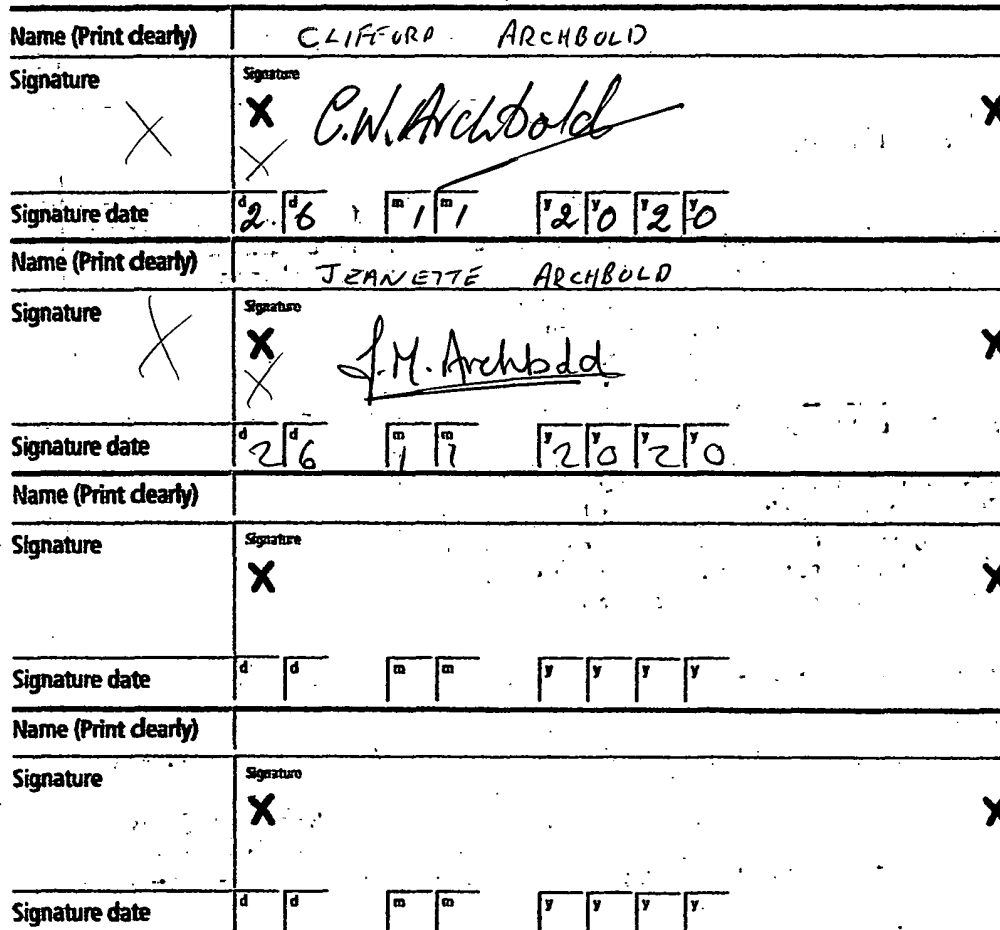 Name (Print clearly) CLIFFORD ARCHBOLD
Signature Signature
X X C.W.Archbold X
X
Signature date d2 d6 m1 m1 y2 y0 y2 y0
Name (Print clearly) JEANETTE ARCHBOLD
Signature Signature
X X J.M.Archbold X
X
Signature date d2 d6 m1 m1 y2 y0 y2 y0
Name (Print clearly)
Signature Signature
X X
Signature date d d m m y y y y
Name (Print clearly)
Signature Signature
X X
Signature date d d m m y y y y